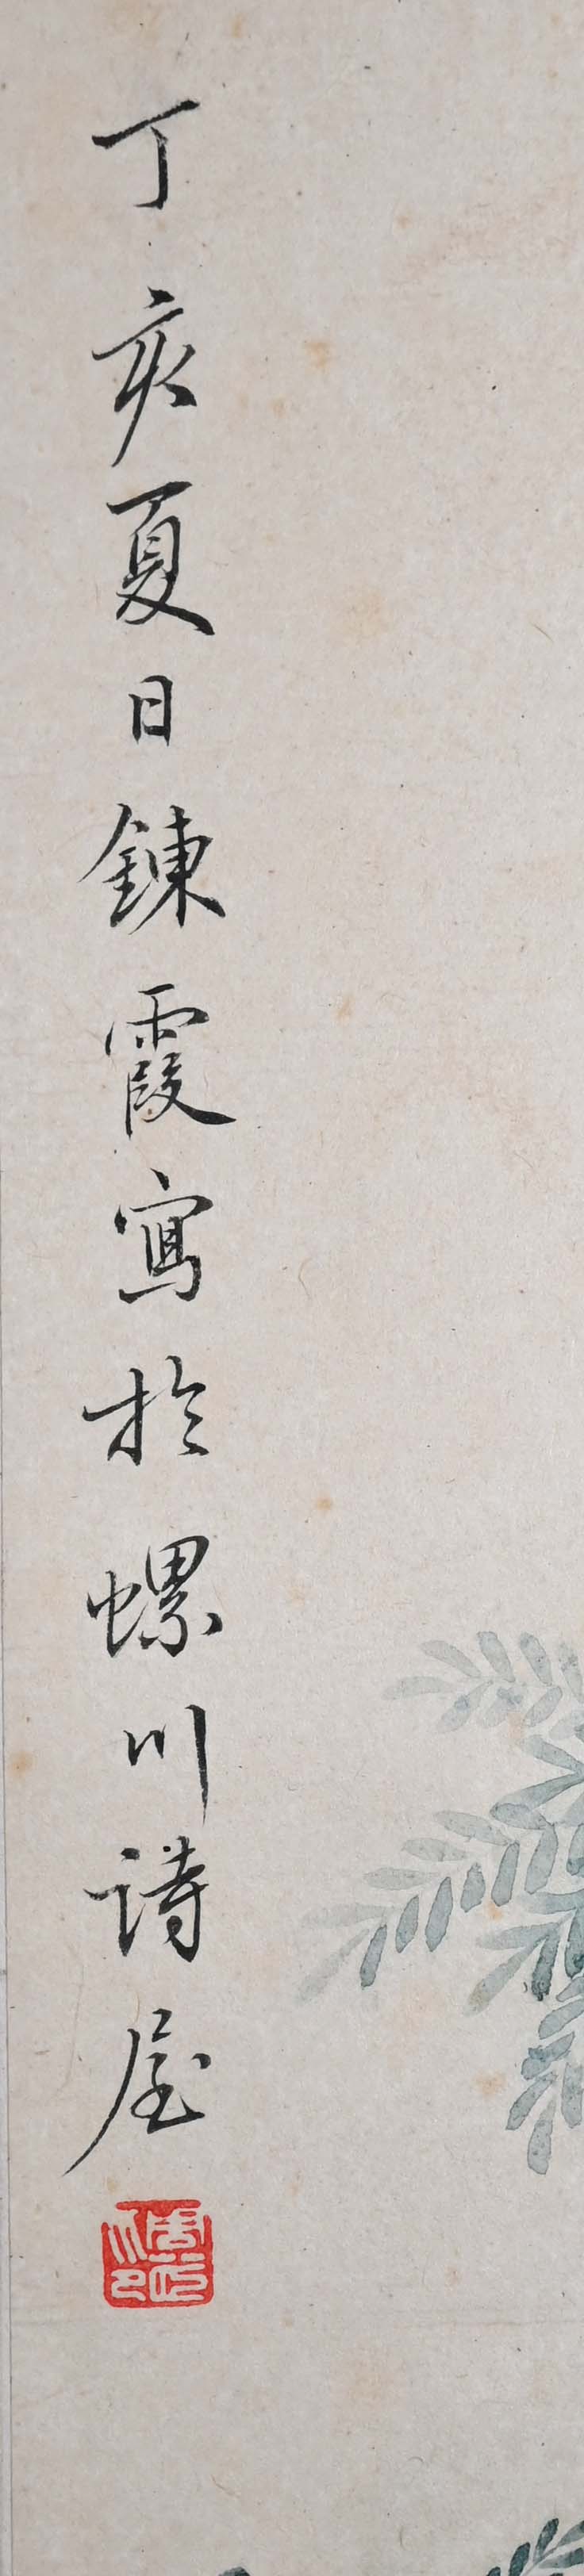 丁亥夏日鍊霞寫於螺川詩屋